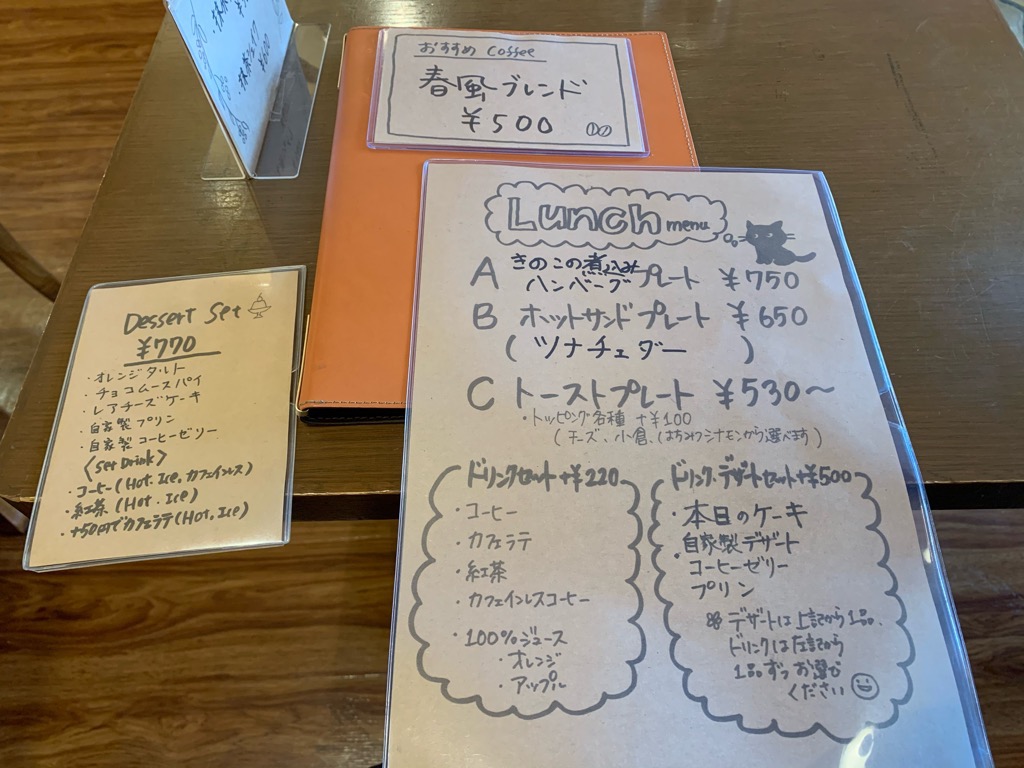 おすすめ Coffee
春風ブレンド
¥500
Lunch menu
A きのこの煮込み
ハンバーグプレート ¥750
B ホットサンドプレート ¥650
(ツナチェダー )
C トーストプレート ¥530〜
・トッピング各種 +¥100
(チーズ、小倉、はちみつシナモンから選べます)
ドリンクセット+¥220
・コーヒー
・カフェラテ
・紅茶
・カフェインレスコーヒー
・100%ジュース
・オレンジ
・アップル
ドリンク、デザートセット+¥500
・本日のケーキ
自家製デザート
・コーヒーゼリー
プリン
※デザートは上記から1品、
ドリンクは左記から
1品ずつお選び
ください
Dessert Set
¥770
・オレンジタルト
・チョコムースパイ
・レアチーズケーキ
・自家製プリン
・自家製コーヒーゼリー
〈Set Drink〉
・コーヒー(Hot. Ice. カフェインレス)
・紅茶 (Hot. Ice)
・+50円でカフェラテ(Hot. Ice)